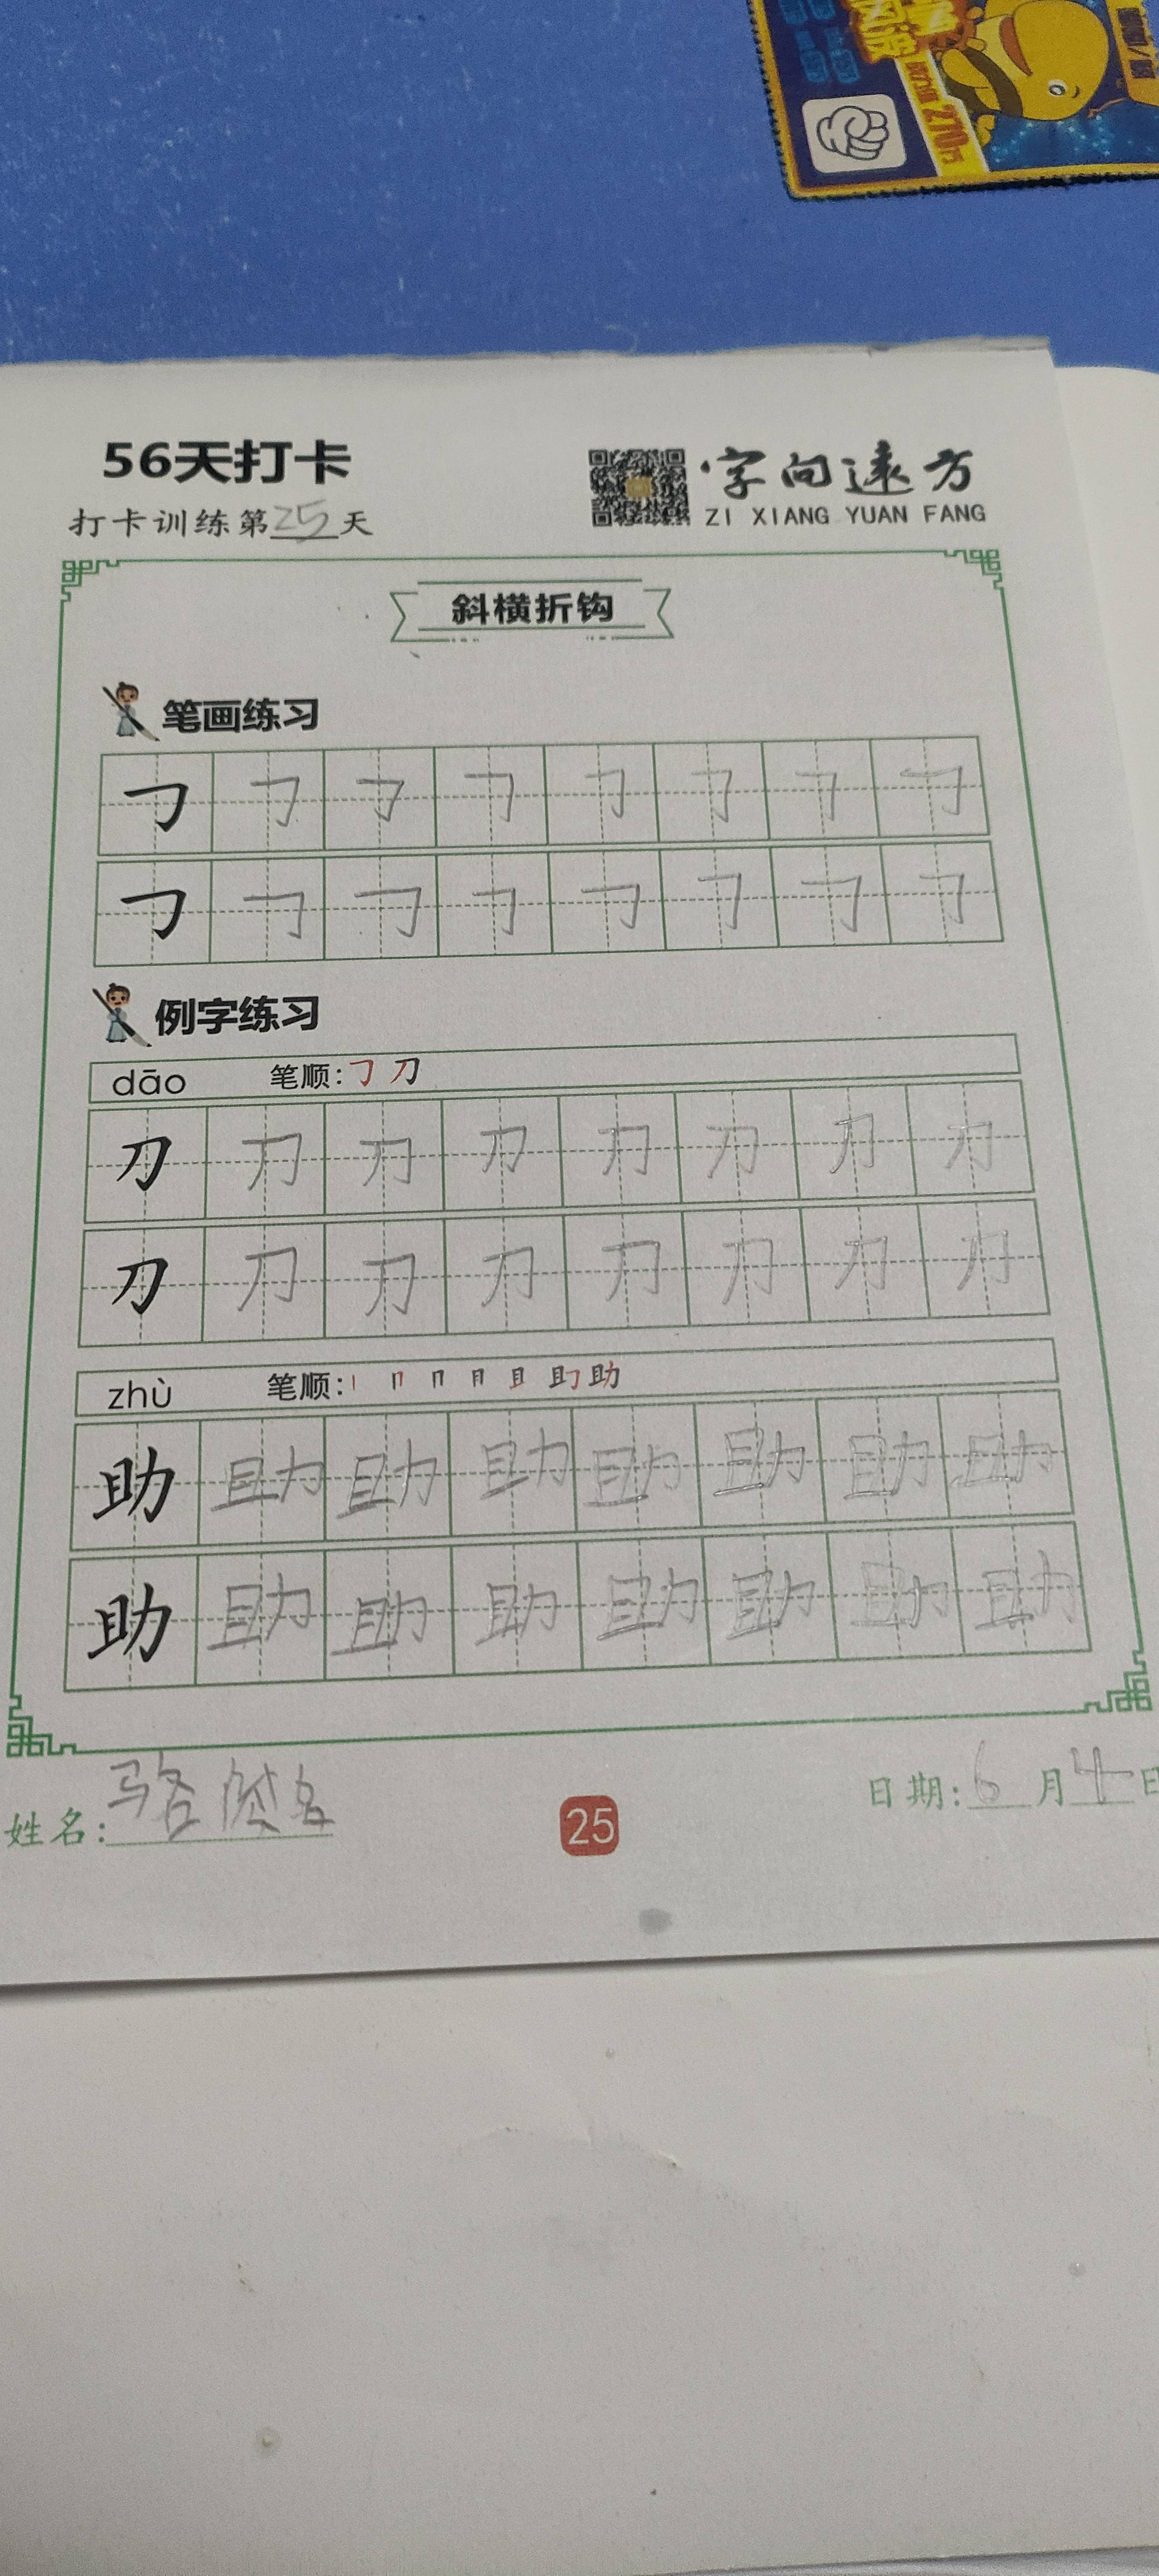 56天打卡
打卡训练第25天
字向远方
ZI XIANG YUAN FANG
斜横折钩
笔画练习
例字练习
dāo 笔顺: 刀
刀 刀 刀 刀 刀 刀 刀 刀
刀 刀 刀 刀 刀 刀 刀 刀
zhù 笔顺: 丨 冂 冂 月 且 助
助 助 助 助 助 助 助 助
助 助 助 助 助 助 助 助
姓名: 骆
25
日期: 6月4日